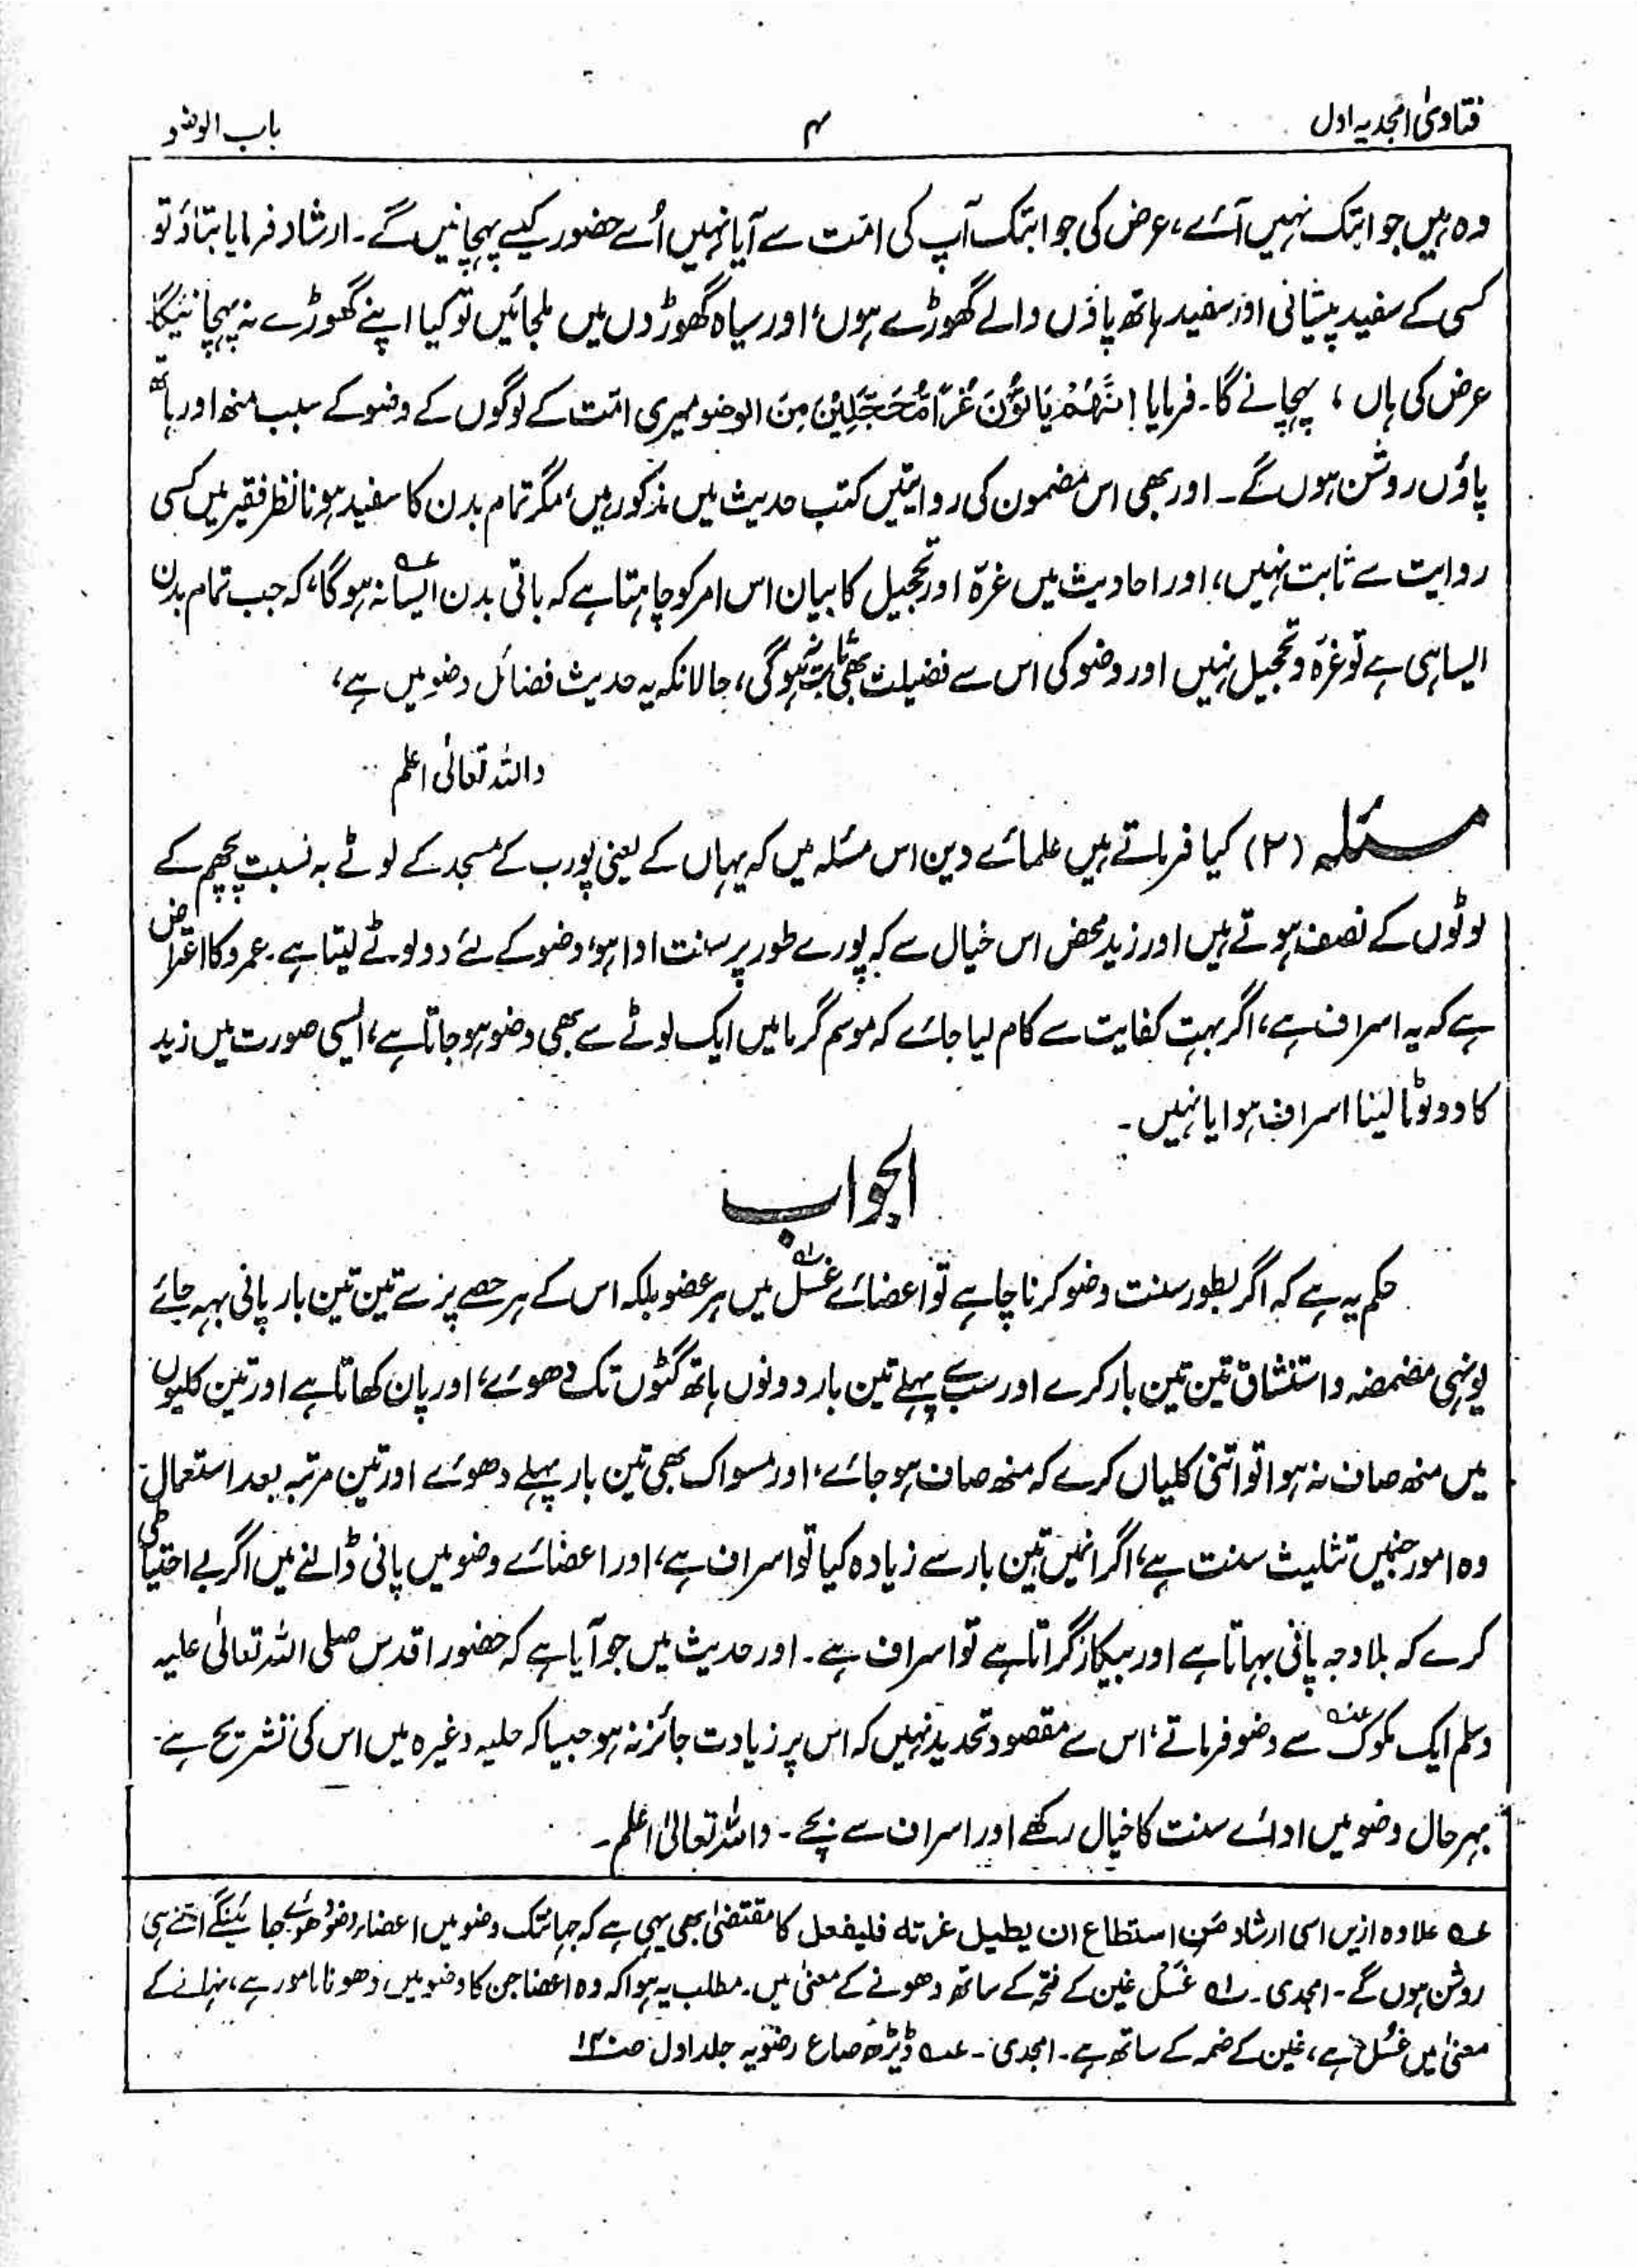 فتاویٰ امجدیہ اول
۴
باب الوضو
وہ ہیں جو ابتک نہیں آئے، عرض کی جو ابتک آپ کی امّت سے آیا نہیں اُسے حضور کیسے پہچانیں گے۔ ارشاد فرمایا بتاؤ تو
کسی کے سفید پیشانی اور سفید ہاتھ پاؤں والے گھوڑے ہوں، اور سیاہ گھوڑوں میں ملجائیں تو کیا اپنے گھوڑے نہ پہچانیگا
عرض کی ہاں، پہچانے گا۔ فرمایا اِنَّهُمْ يَاتُوْنَ غُرًّا مُّحَجَّلِيْنَ مِنَ الوضو میری امّت کے لوگوں کے وضو کے سبب منھ اور ہاتھ
پاؤں روشن ہوں گے۔ اور بھی اس مضمون کی روایتیں کتب حدیث میں مذکور ہیں، مگر تمام بدن کا سفید ہونا نظر فقیر میں کسی
روایت سے ثابت نہیں، اور احادیث میں غرّہ اور تحجیل کا بیان اس امر کو چاہتا ہے کہ باقی بدن ایسا عہ نہ ہوگا، کہ جب تمام بدن
ایسا ہی ہے تو غرّہ و تحجیل نہیں اور وضو کی اس سے فضیلت بھی ثابت نہ ہوگی، حالانکہ یہ حدیث فضائل وضو میں ہے،
واللہ تعالیٰ اعلم
مسئلہ (۲) کیا فرماتے ہیں علمائے دین اس مسئلہ میں کہ یہاں کے یعنی پورب کے مسجد کے لوٹے بہ نسبت پچھم کے
لوٹوں کے نصف ہوتے ہیں اور زید محض اس خیال سے کہ پورے طور پر سنت ادا ہو، وضو کے لئے دو لوٹے لیتا ہے۔ عمرو کا اعتراض
ہے کہ یہ اسراف ہے، اگر بہت کفایت سے کام لیا جائے کہ موسم گرما میں ایک لوٹے سے بھی وضو ہو جاتا ہے، ایسی صورت میں زید
کا دو لوٹا لینا اسراف ہوا یا نہیں۔
الجواب
حکم یہ ہے کہ اگر بطور سنت وضو کرنا چاہے تو اعضائے غسل ؎۱ میں ہر عضو بلکہ اس کے ہر حصے پر سے تین تین بار پانی بہہ جائے
یونہی مضمضہ و استنشاق تین تین بار کرے اور سب سے پہلے تین بار دونوں ہاتھ گٹوں تک دھوئے، اور پان کھاتا ہے اور تین کلیوں
میں منھ صاف نہ ہوا تو اتنی کلیاں کرے کہ منھ صاف ہو جائے، اور مسواک بھی تین بار پہلے دھوئے اور تین مرتبہ بعد استعمال
وہ امور جنمیں تثلیث سنت ہے، اگر انمیں تین بار سے زیادہ کیا تو اسراف ہے، اور اعضائے وضو میں پانی ڈالنے میں اگر بے احتیاطی
کرے کہ بلا وجہ پانی بہاتا ہے اور بیکار گراتا ہے تو اسراف ہے۔ اور حدیث میں جو آیا ہے کہ حضور اقدس صلی اللہ تعالیٰ علیہ
وسلم ایک مکوک عہ سے وضو فرماتے، اس سے مقصود تحدید نہیں کہ اس پر زیادت جائز نہ ہو جیسا کہ حلیہ وغیرہ میں اس کی تشریح ہے۔
بہر حال وضو میں ادائے سنت کا خیال رکھے اور اسراف سے بچے۔ واللہ تعالیٰ اعلم۔
عہ علاوہ ازیں اسی ارشاد مَن استطاع ان یطیل غرته فلیفعل کا مقتضیٰ بھی یہی ہے کہ جہانتک وضو میں اعضاء وضو دھوئے جائینگے اتنے ہی
روشن ہوں گے۔ امجدی۔ ؎۱ غَسل غین کے فتحہ کے ساتھ دھونے کے معنیٰ میں۔ مطلب یہ ہوا کہ وہ اعضا جن کا وضو میں دھونا مامور ہے، نہانے کے
معنیٰ میں غُسل ہے، غین کے ضمہ کے ساتھ ہے۔ امجدی۔ عہ ڈیڑھ صاع رضویہ جلد اول